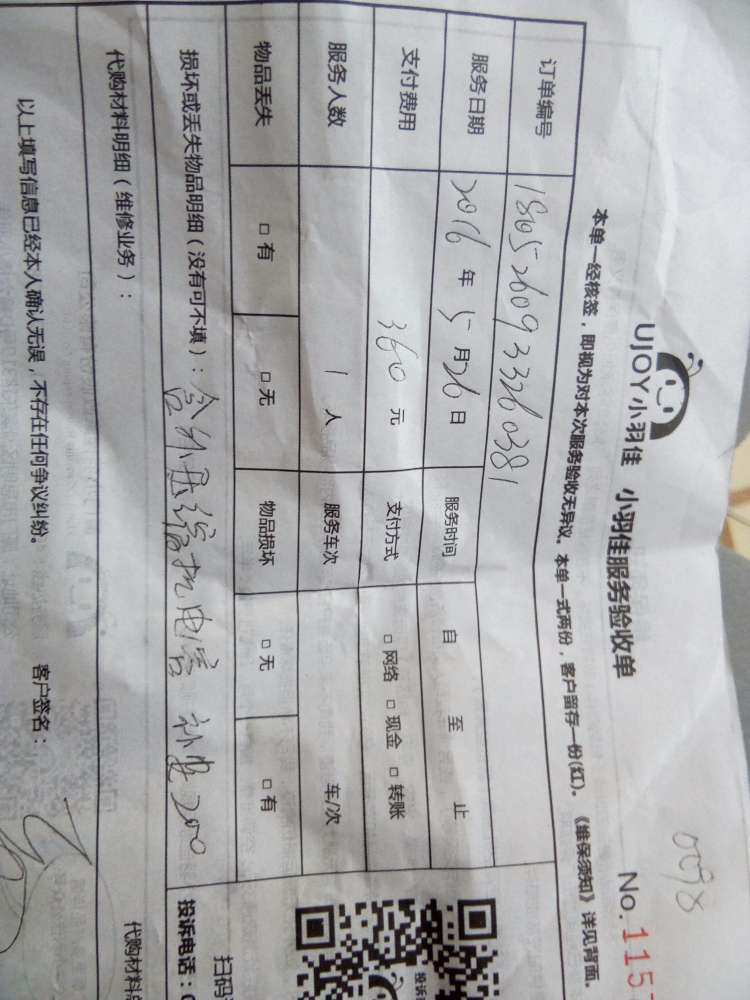 0098
UJOY小羽佳 小羽佳服务验收单 No.115
本单一经核签，即视为对本次服务验收无异议。本单一式两份，客户留存一份(红)。《维保须知》详见背面。
订单编号 1805260933260381
服务日期 2016年5月26日 服务时间 自 至 止
支付费用 360元 支付方式 □网络 □现金 □转账
服务人数 1人 服务车次 车/次
物品丢失 □有 □无 物品损坏 □无 □有
损坏或丢失物品明细（没有可不填）：含外压缩机电容 补费200
代购材料明细（维修业务）：
代购材料
以上填写信息已经本人确认无误，不存在任何争议纠纷。 客户签名：
投诉
扫码
投诉电话：0